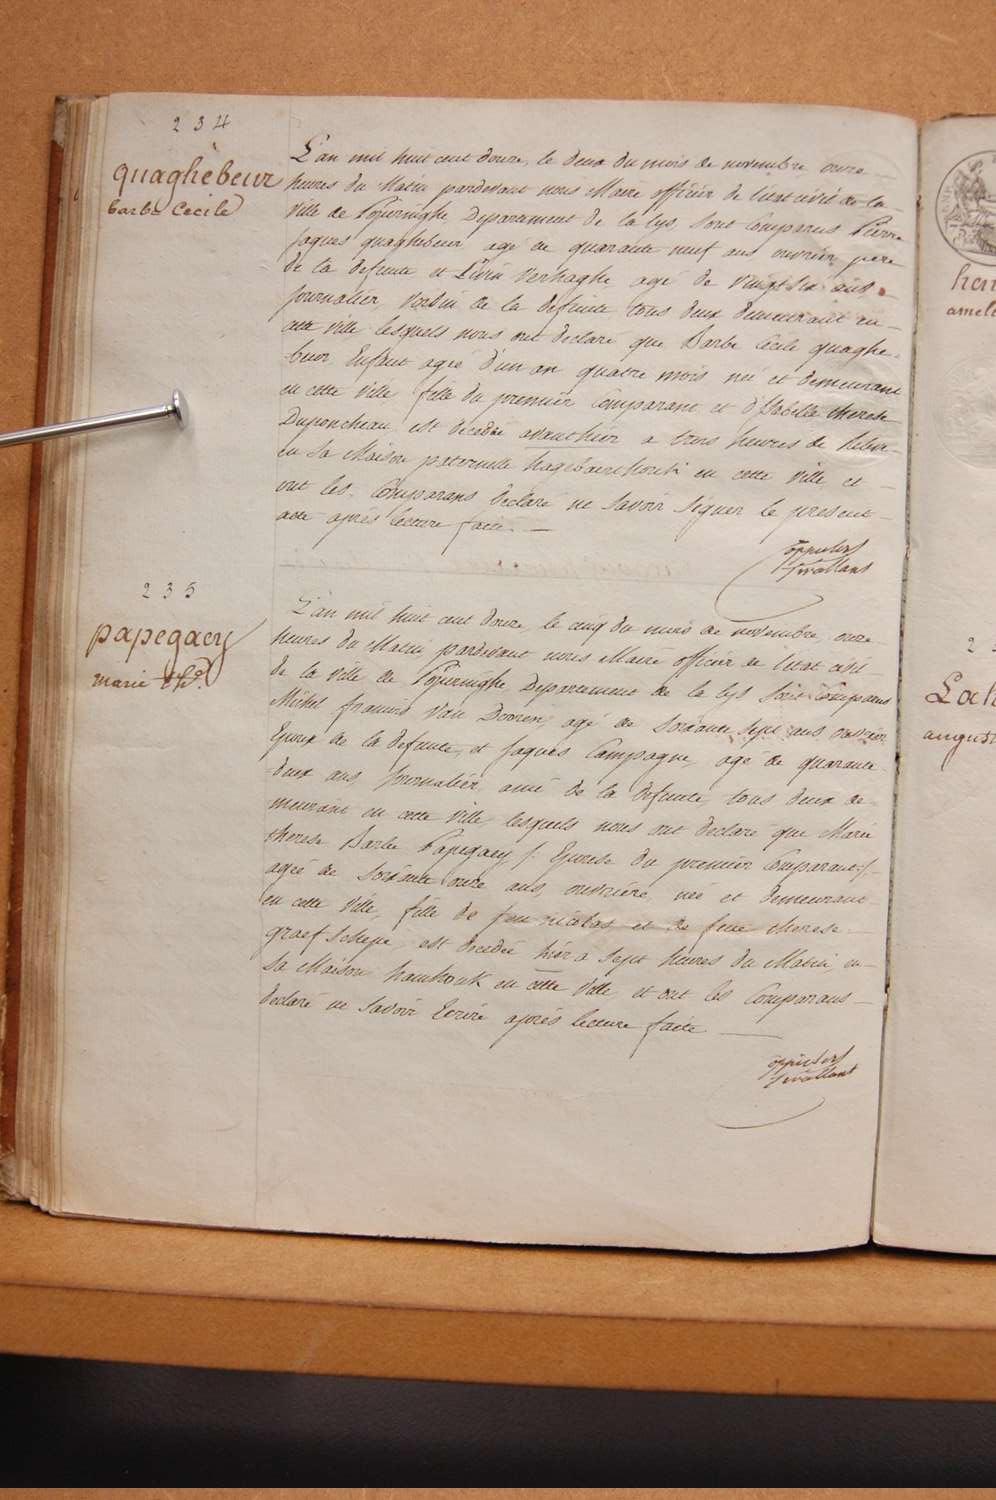 234
quaghebeur
barbe Cecile
L'an mil huit cent douze, le deux du mois de novembre onze
heures du Matin pardevant nous Maire officier de l'etat civil de la
ville de Poperinghe Departement de la lys, sont Comparus Pierre
Jaques quaghebeur agé de quarante neuf ans ouvrier pere
de la defunte et Livin Verhaghe agé de vingt six ans
Journalier, Voisin de la defunte tous deux demeurant en
cette ville lesquels nous ont declaré que Barbe Cecile quaghe-
beur, Enfant agée d'un an quatre mois née et demeurant
en cette ville fille du premier Comparant et d'Isabelle therese
Duponcheau est decedée avanthier a trois heures de
en sa Maison paternelle en cette ville et
ont les Comparans declaré ne savoir signer le present
acte après lecture faite. —
235
papegaey
marie th.
L'an mil huit cent douze, le cinq du mois de novembre, onze
heures du Matin pardevant nous Maire officier de l'etat civil
de la ville de Poperinghe Departement de la lys sont Comparus
Michel francois Van Dooren, agé de soixante sept ans, ouvrier
Epoux de la defunte, et Jaques Campagne, agé de quarante
deux ans, Journalier, ami de la defunte, tous deux de-
meurant en cette ville, lesquels nous ont declaré que Marie
therese Barbe Papegaey /: Epouse du premier Comparant :/
agée de soixante onze ans, ouvrière, née et demeurant
en cette ville, fille de feu nicolas et de feue therese
graefschepe, est decedée hier a sept heures du Matin, en
sa Maison hamhouk en cette ville et ont les Comparans
declaré ne savoir Ecrire après lecture faite —
234